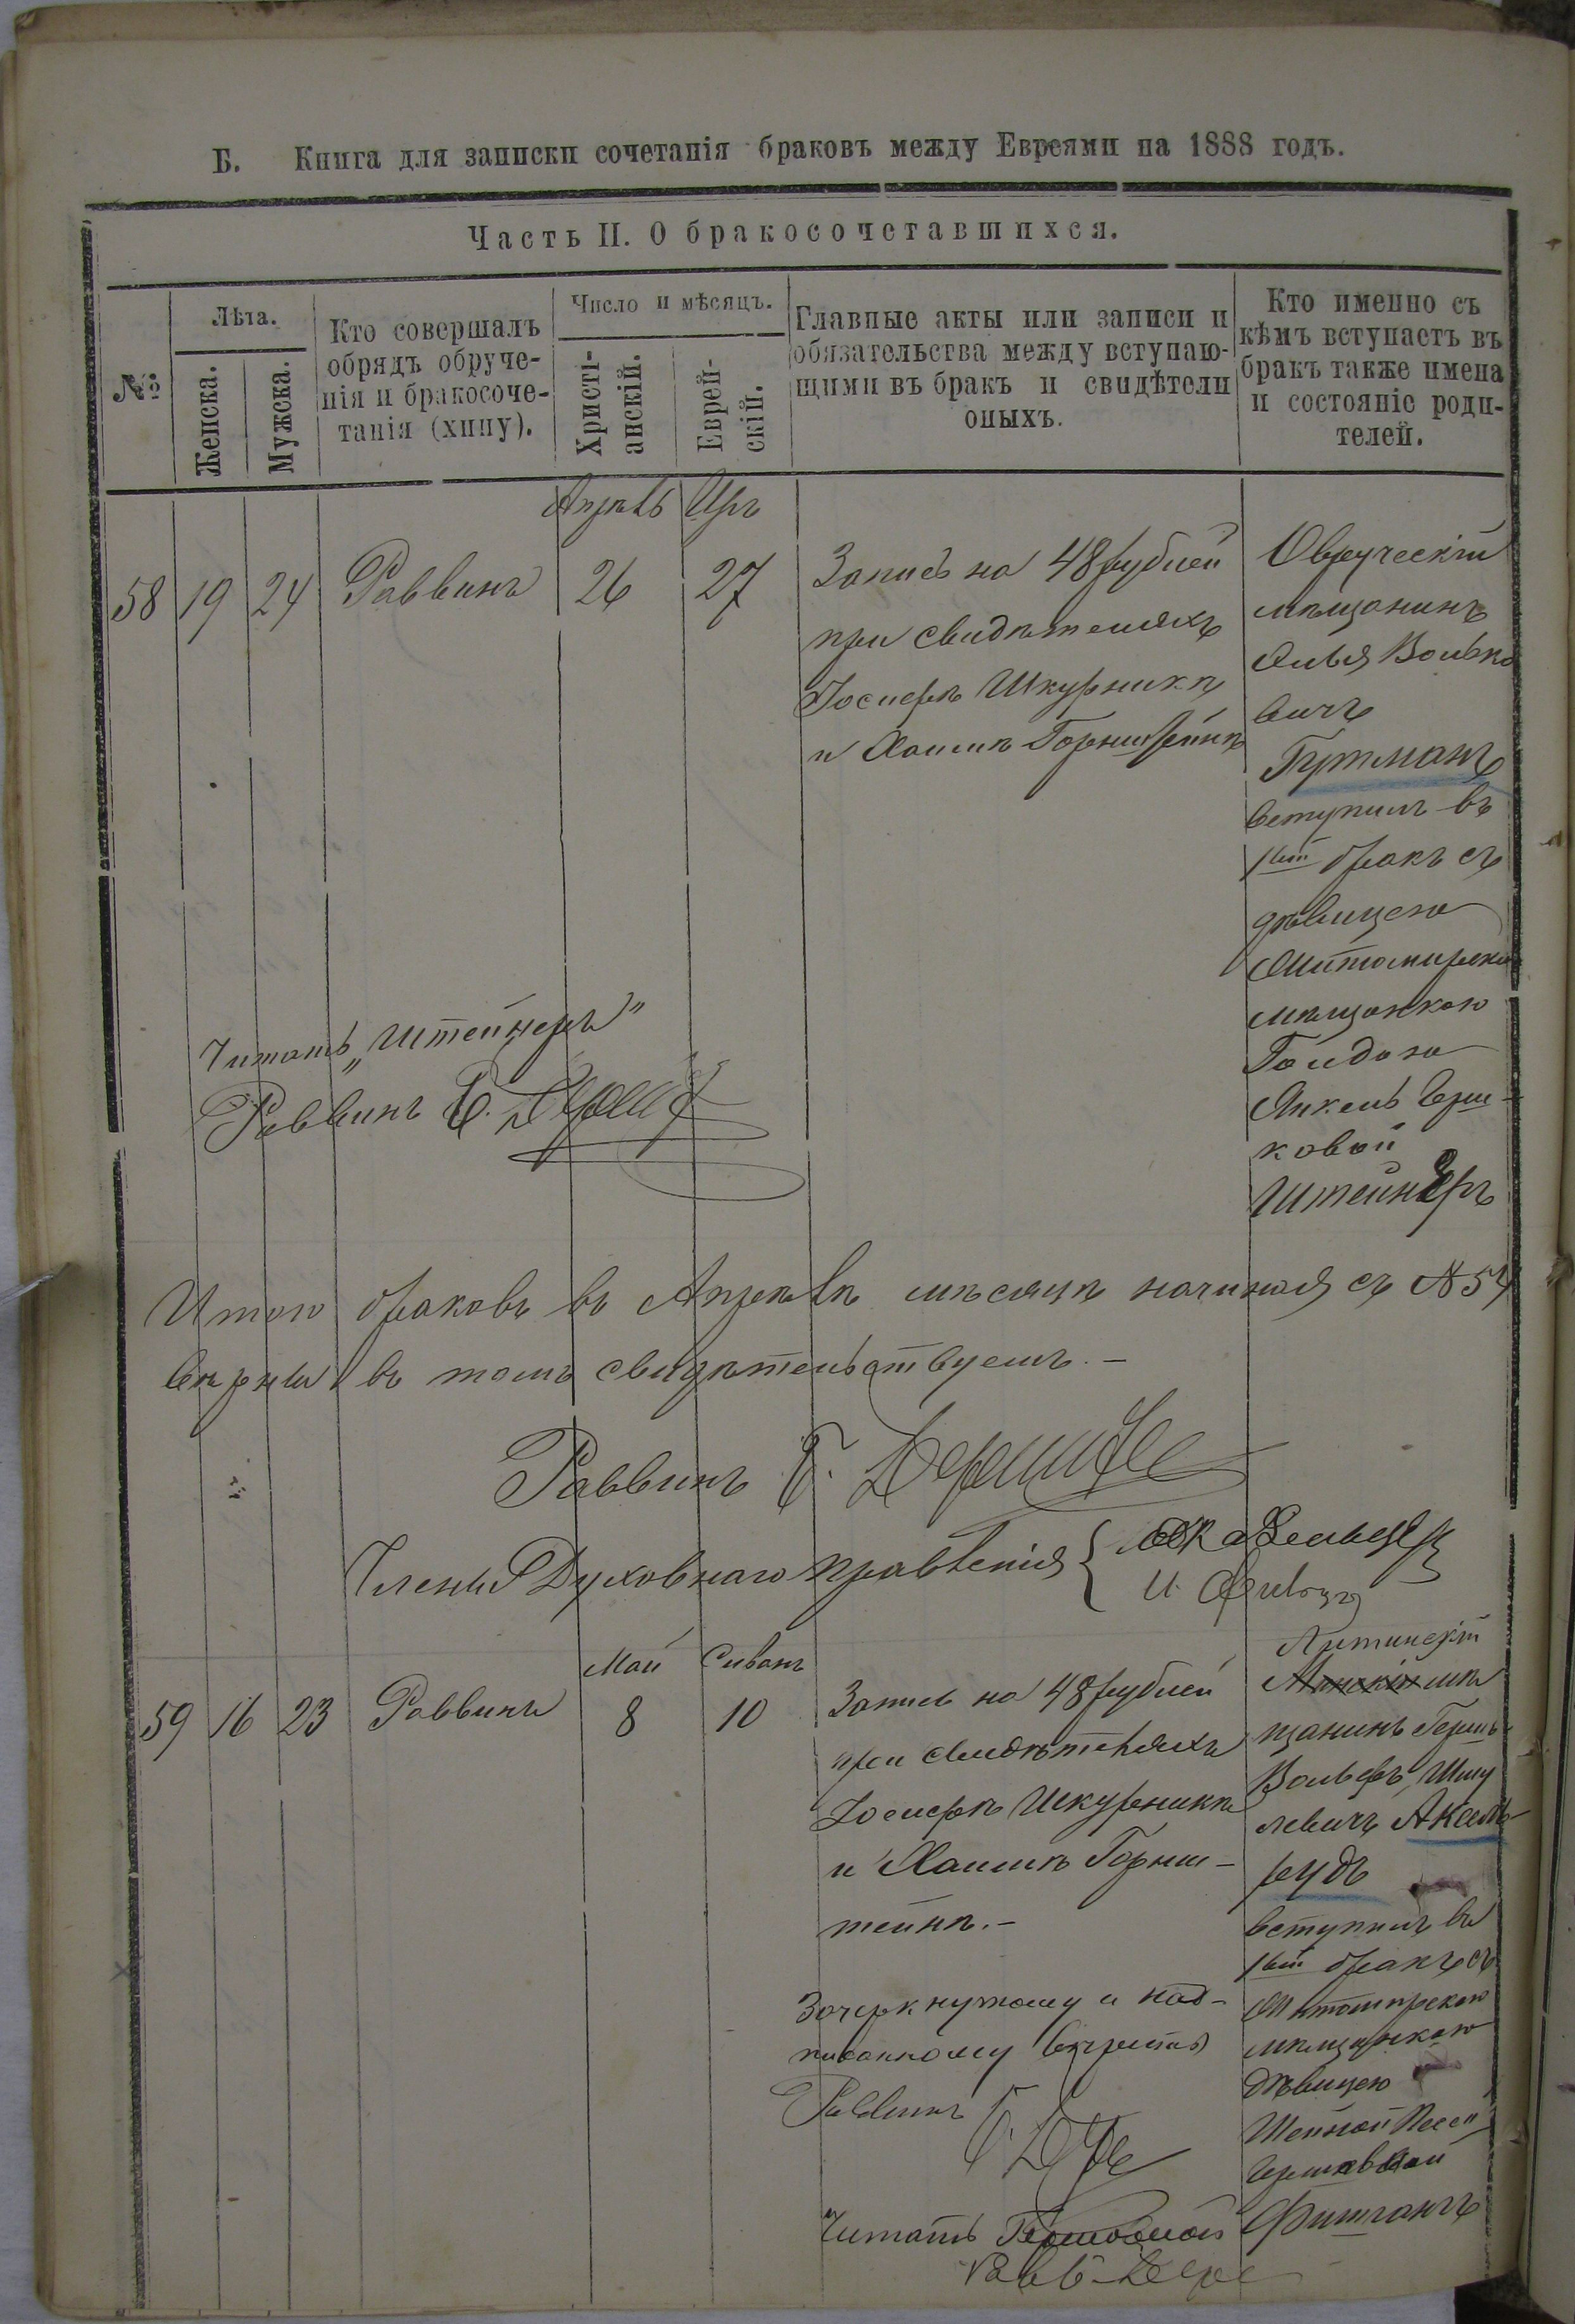 Б. Книга для записки сочетанія браковъ между Евреями на 1888 годъ.
Часть II. О бракосочетавшихся.
№
Лѣта.
Женска.
Мужска.
Кто совершалъ
обрядъ обруче-
нія и бракосоче-
танія (хипу).
Число и мѣсяцъ.
Христі-
анскій.
Еврей-
скій.
Главные акты или записи и
обязательства между вступаю-
щими въ бракъ и свидѣтели
оныхъ.
Кто именно съ
кѣмъ вступаетъ въ
бракъ также имена
и состояніе роди-
телей.
Апрѣль Іиръ
58 19 24 Раввинъ 26 27
Запись на 48 рублей
при свидѣтеляхъ
Іосифѣ Шкурникѣ
и Хаимѣ Горнштейнѣ
Овруческій
мѣщанинъ
Илья Волько
вичъ
Гутманъ
вступилъ въ
1ый бракъ съ
дѣвицею
Житомирскою
мѣщанкою
Голдою
Янкель Герш-
ковой
Штейнеръ
Читать „Штейнеръ"
Раввинъ
Итого браковъ въ Апрѣлѣ мѣсяцѣ начиная съ № 54
вѣрны въ томъ свидѣтельствуемъ. —
Раввинъ
Члены Духовнаго правленія
Май Сиванъ
59 16 23 Раввинъ 8 10
Запись на 48 рублей
при свидѣтеляхъ
Іосифѣ Шкурникѣ
и Хаимѣ Горнш-
тейнѣ. —
Зачеркнутому и над-
писанному вѣрить
Раввинъ
Читать Гершовной
Литинскій
мѣ
щанинъ Гершъ
Вольфъ Шму
левичъ Аксель-
рудъ
вступилъ въ
1ый бракъ съ
Житомирскою
мѣщанкою
дѣвицею
Шейной Песей
Фишманъ